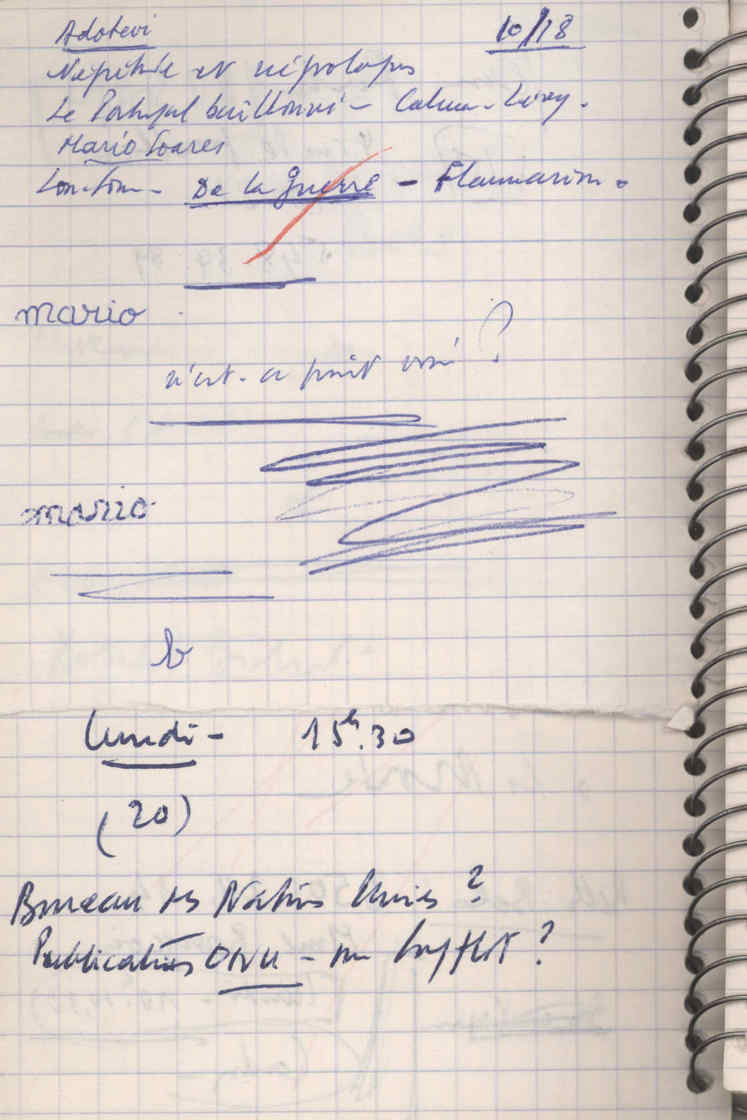 Adotevi 10/18
Négritude et négrologues
Le Portugal baillonné - Calman-Lévy.
Mario Soares
De la guerre - Flammarion.
mario
n'est-ce point vrai ?
mario
b
lundi - 15h.30
(20)
Bureau des Nations Unies ?
Publications ONU - rue Soufflot ?